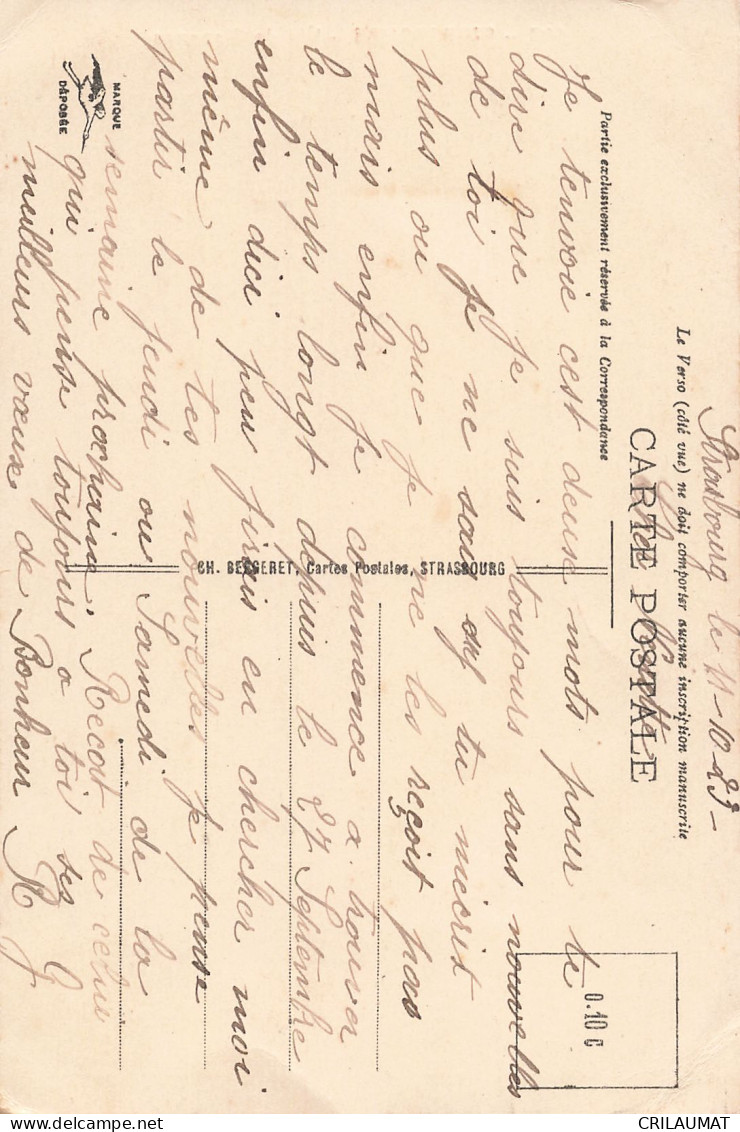 Strasbourg le 11-10-25-
Le Verso (côté vue) ne doit comporter aucune inscription manuscrite
CARTE POSTALE
Partie exclusivement réservée à la Correspondance
0.10 c
Je tenvoie cest deuse mots pour te
dire que je suis toujours sans nouvelles
de toi je ne sais si tu mécrit
plus ou que je ne les reçoit pas
mais enfin je commence a trouver
le temps longt depuis le 27 Septembre
enfin dici peu jirais en chercher moi
même de tes nouvelles je pense
partir le jeudi ou Samedi de la
semaine prochaine. Recoit de celui
qui pense toujours a toi ses
meilleurs vœux de Bonheur
MARQUE
DÉPOSÉE
CH. BERGERET, Cartes Postales, STRASBOURG
CRILAUMAT